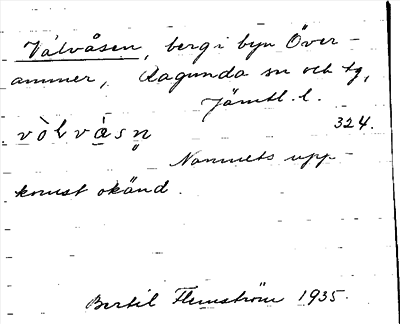 Válvåsen, berg i byn Över-
ammer, Ragunda sn och tg,
Jämtl. l.
324.
vòlvåsn̥
Namnets upp-
komst okänd.
Bertil Flemström 1935.